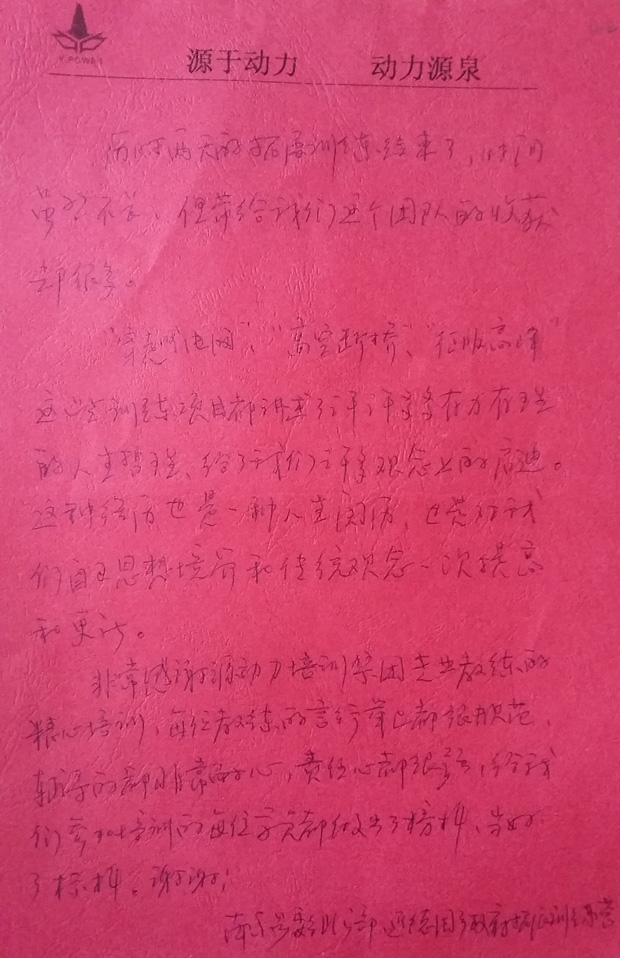 Y.POWER
源于动力 动力源泉
历时两天的拓展训练结束了,时间
虽然不长,但带给我们这个团队的收获
却很多。
"穿越电网"、"高空断桥"、"征服高峰"
这些训练项目都讲述了许许多多存力存理
的人生哲理,给了我们许多观念上的启迪。
这种经历也是一种人生阅历,也是对我
们自己思想境界和传统观念一次提高
和更新。
非常感谢源动力培训集团专业教练的
精心培训,每位教练的言行举止都很规范,
辅导的都非常耐心,责任心都很强,给我
们参加培训的每位学员都做出了榜样,当好
了标杆。谢谢!